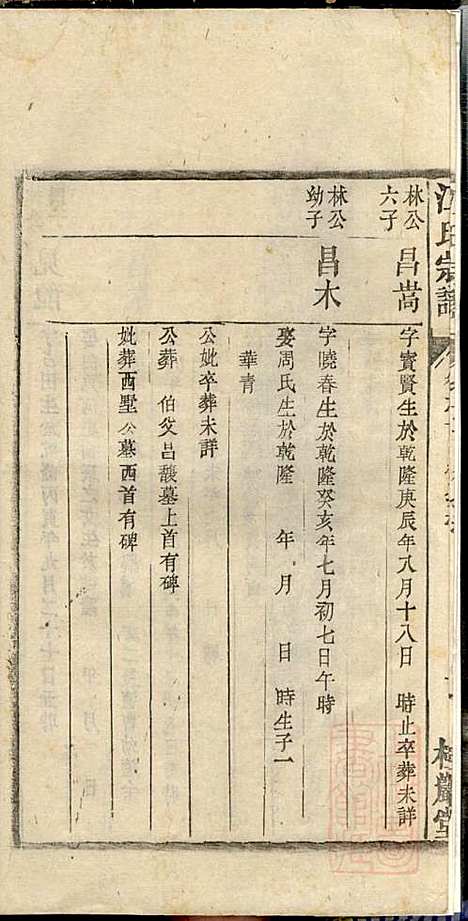 氏宗譜
林公
六子
昌嵩
字寳賢生於乾隆庚辰年八月十八日 時止卒葬未詳
林公
幼子
昌木
字曉春生於乾隆癸亥年七月初七日午時
娶周氏生於乾隆 年 月 日 時生子一
華青
公妣卒葬未詳
公葬 伯父昌馥墓上首有碑
妣葬西墅公墓西首有碑